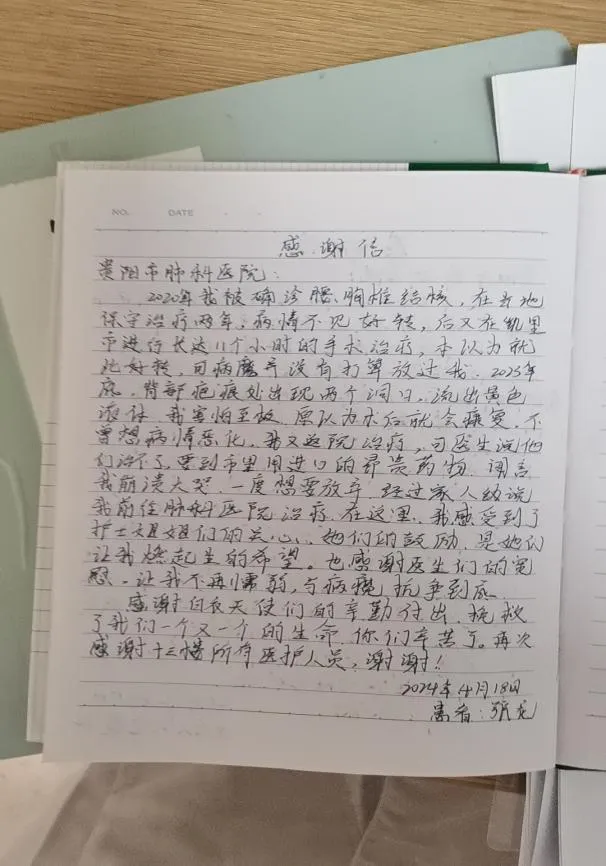 NO.
DATE
感谢信
贵阳市肺科医院:
2020年我被确诊腰、胸椎结核,在当地
保守治疗两年,病情不见好转,后又在凯里
市进行长达11个小时的手术治疗,本以为就
此好转,可病魔并没有打算放过我。2023年
底,背部疤痕处出现两个洞口,流出黄色
液体,我害怕至极,原以为术后就会痊愈,不
曾想病情恶化,我又返院治疗,可医生说他
们治不了,要到市里用进口的昂贵药物,闻言
我崩溃大哭,一度想要放弃,经过家人劝说
我前往肺科医院治疗,在这里,我感受到了
护士姐姐们的关心,她们的鼓励,是她们
让我燃起生的希望。也感谢医生们的宽
慰,让我不再懦弱,与病魔抗争到底。
感谢白衣天使们的辛勤付出,拯救
了我们一个又一个的生命,你们辛苦了。再次
感谢十三楼所有医护人员,谢谢!
2024年4月18日
患者:张龙